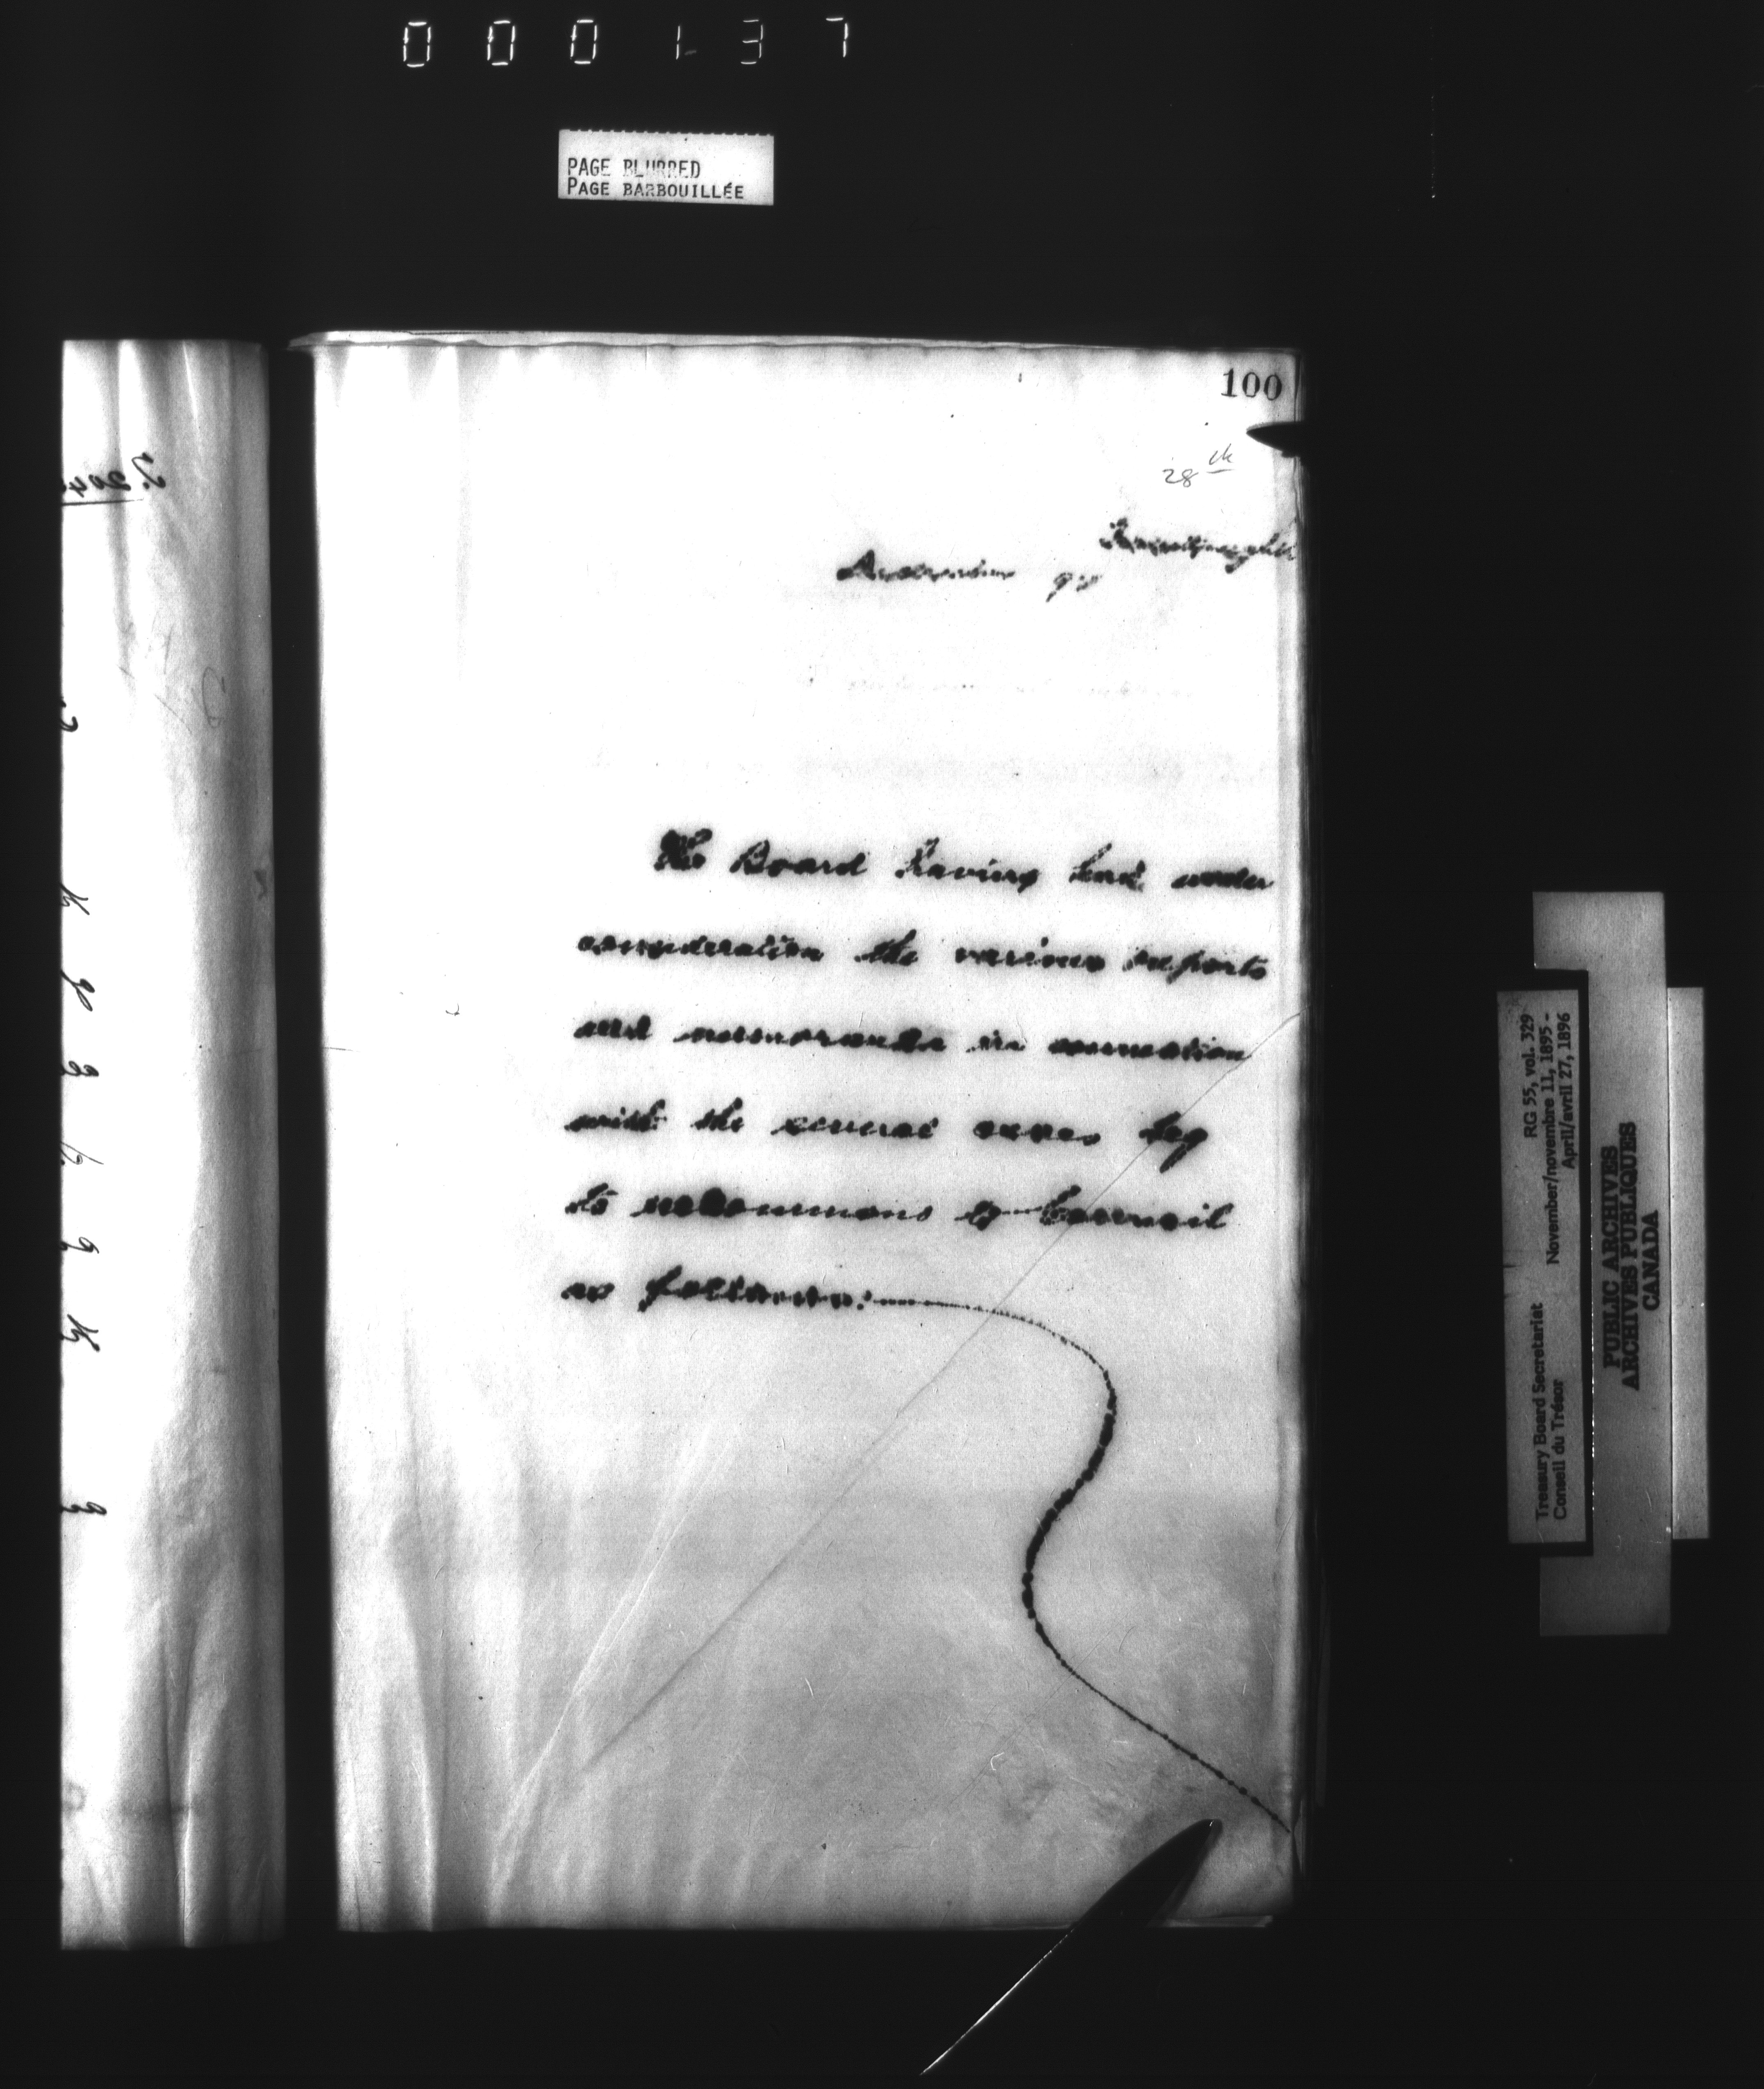 000137
PAGE BLURRED
PAGE BARBOUILLÉE
100
28th
The Board having had under
consideration the various reports
and memoranda in connection
with the several cases beg
to recommend to Council
as follows:
RG 55, vol. 329
November/novembre 11, 1895 -
April/avril 27, 1896
Treasury Board Secretariat
Conseil du Trésor
PUBLIC ARCHIVES
ARCHIVES PUBLIQUES
CANADA